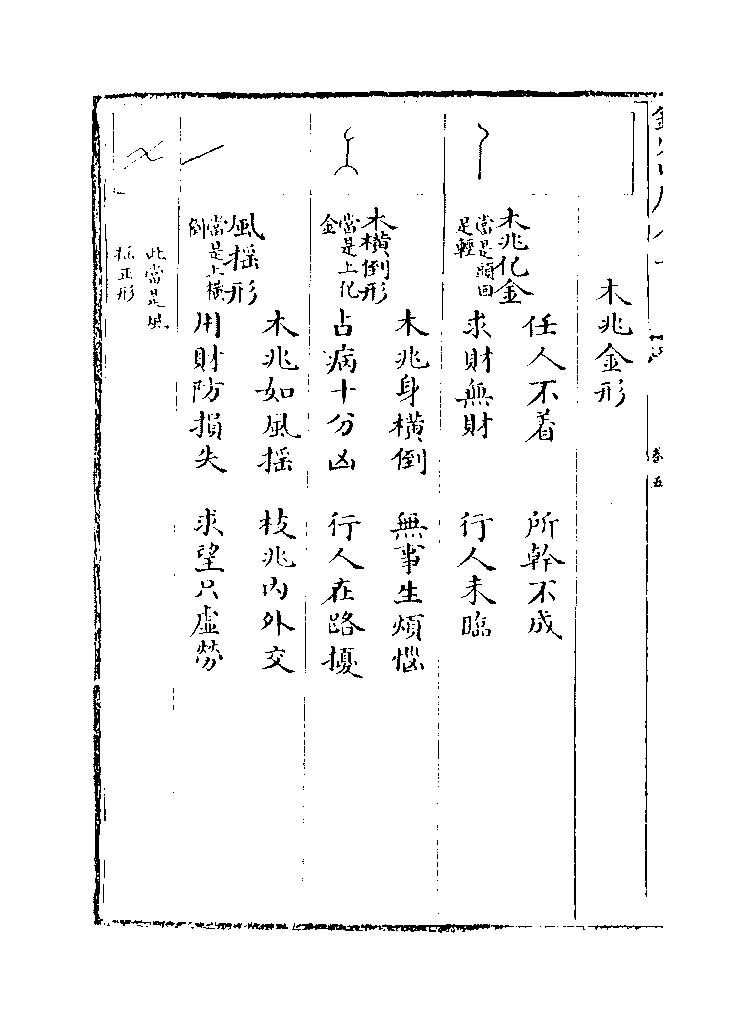 木兆金形
木兆化金
當是頭回
足輕
任人不着　所幹不成
求財無財　行人未臨
木橫倒形
當是上化
金
木兆身橫倒　無事生煩惱
占病十分凶　行人在路擾
風搖形
當是上橫
倒
木兆如風搖　枝兆內外交
用財防損失　求望只虛勞
此當是風
搖正形
卷五